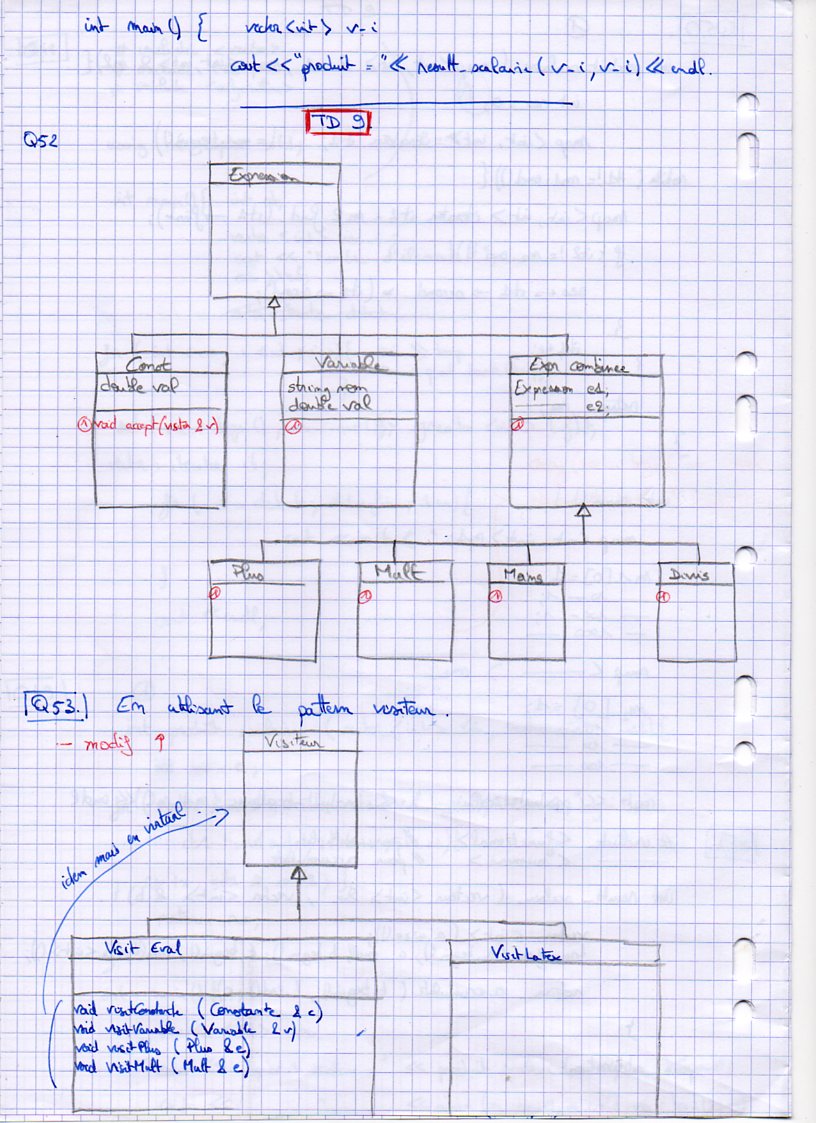 int main() { vector<int> v_i
cout << "produit = " << result_scalaire(v_i, v_i) << endl.
TD 9.
Q52
Expression
Const
double val
① void accept(visitor & v)
Variable
string nom
double val
①
Expr combinee
Expression e1;
e2;
①
Plus
①
Mult
①
Moins
①
Divis
①
Q53. En utilisant le pattern visiteur.
- modif ↑
Visiteur
idem mais en virtual.
Visit Eval
void visitConstante (Constante & c)
void visitVariable (Variable & v)
void visitPlus (Plus & e)
void visitMult (Mult & e)
VisitLatex